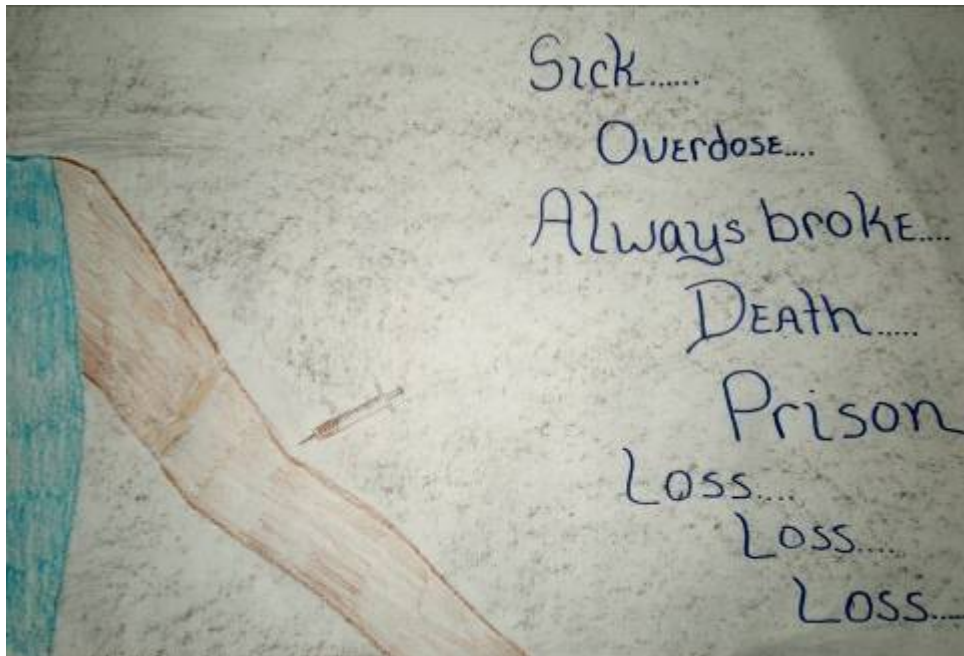 Sick......
Overdose....
Always broke....
Death.....
Prison
Loss....
Loss.....
Loss....